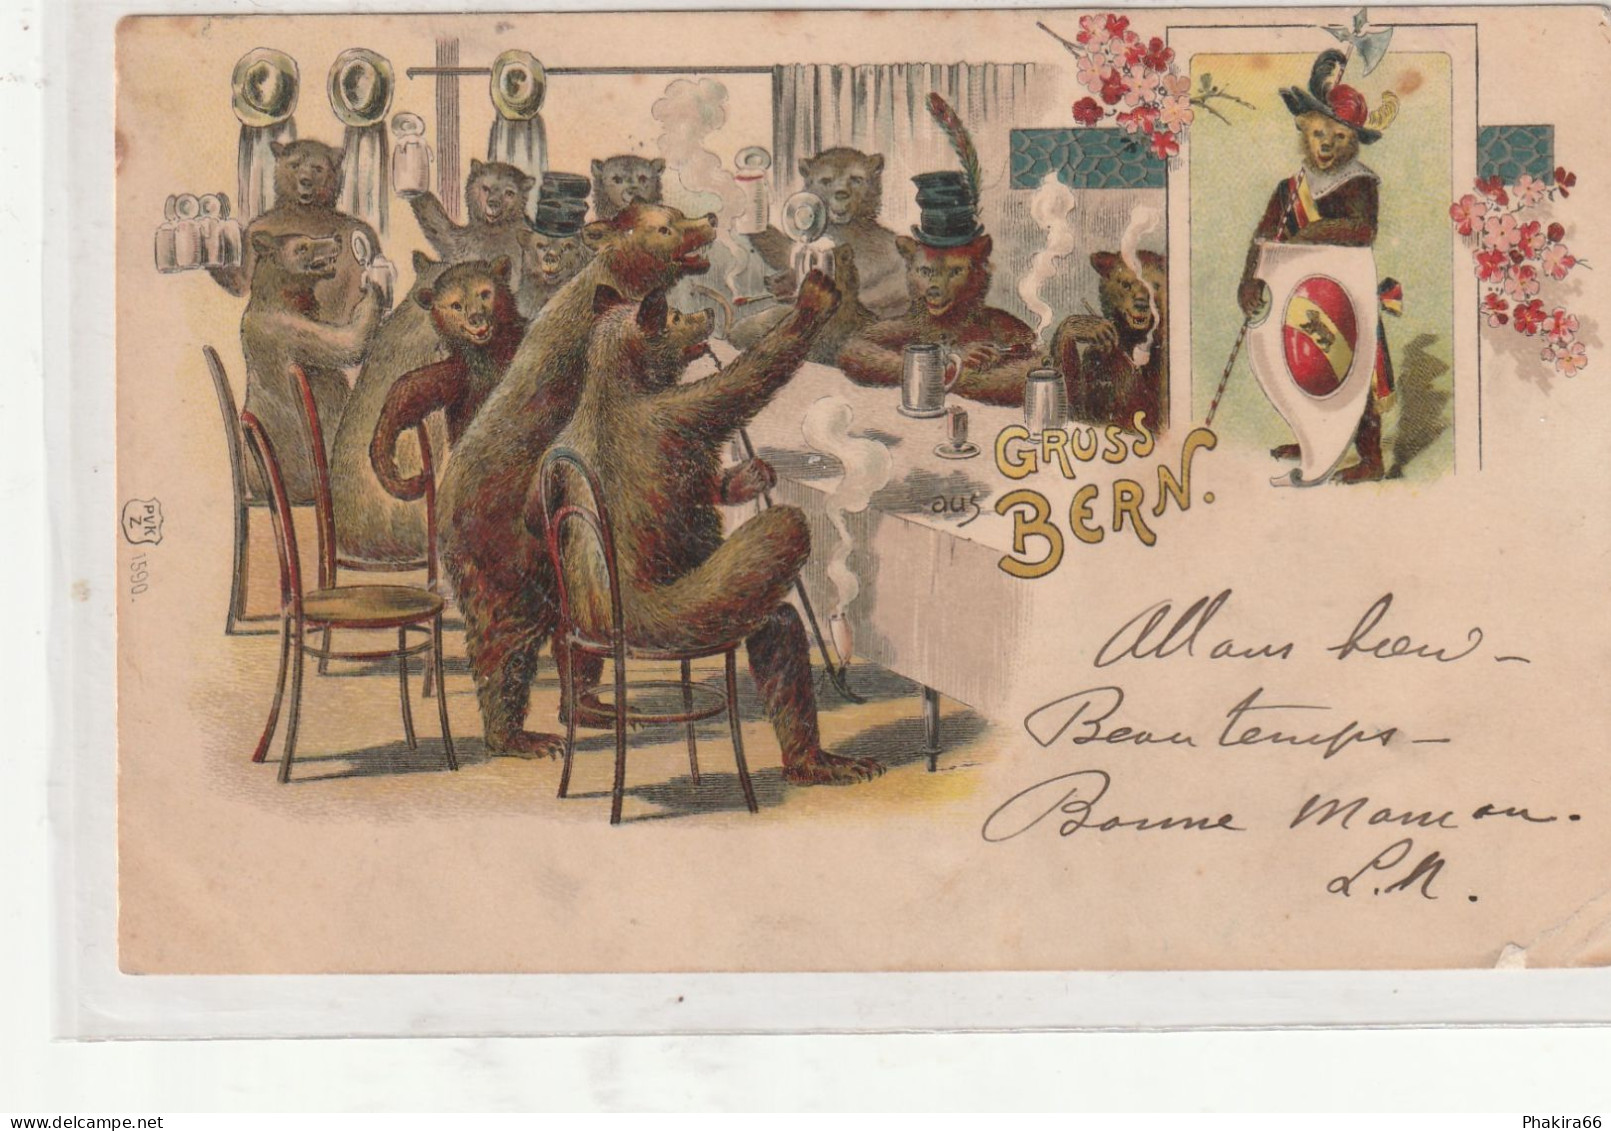 GRUSS
aus BERN.
PVK
Z
1590.
Allons bien –
Beau temps –
Bonne Maman.
L.N.
delcampe.net
Phakira66